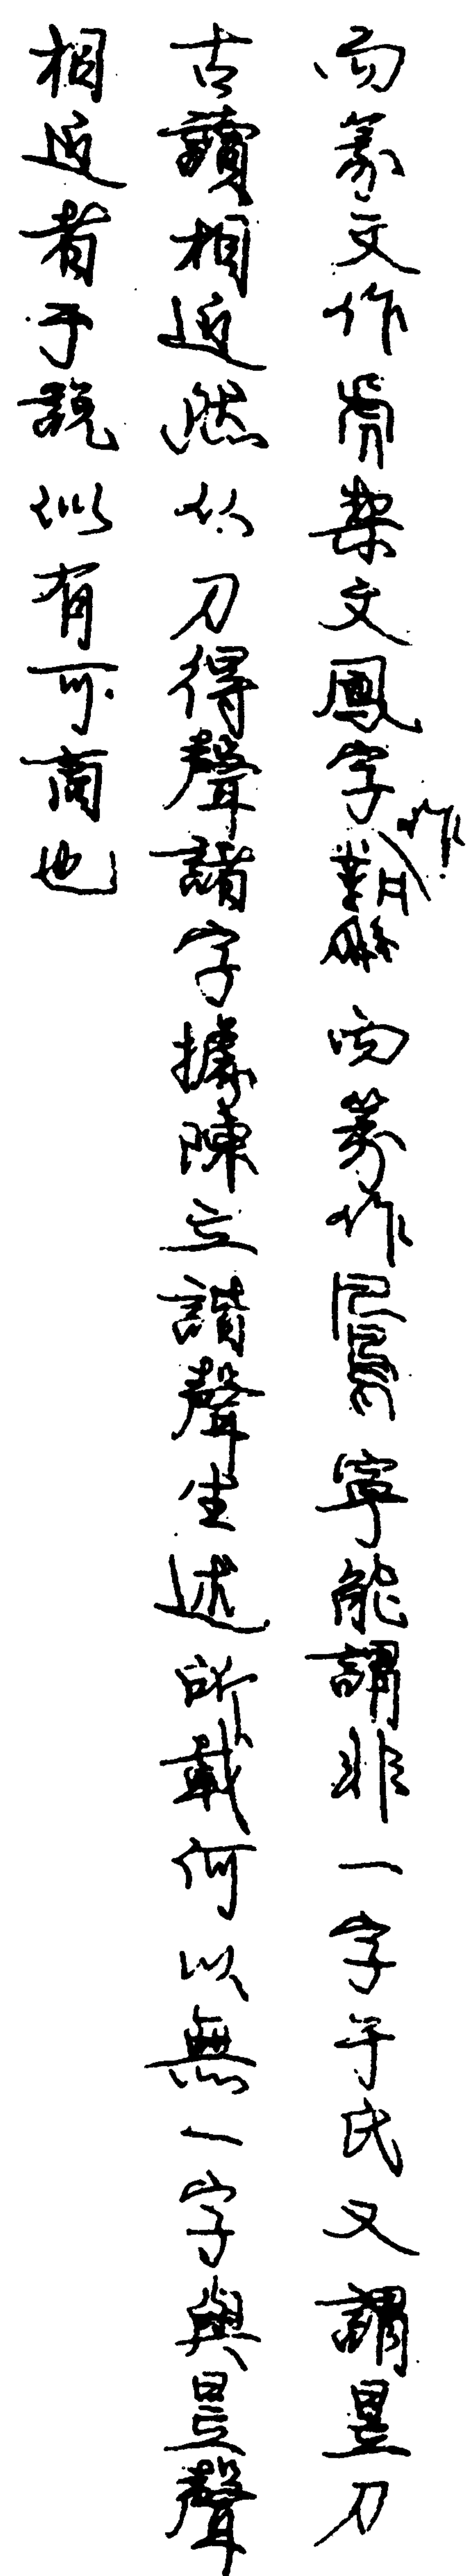 而篆文作契文鳳字作而篆作寧能謂非一字于氏又謂㫗刀
古讀相近然从刀得聲諸字據陳立諧聲生述所載何以無一字與㫗聲
相近者于說似有可商也